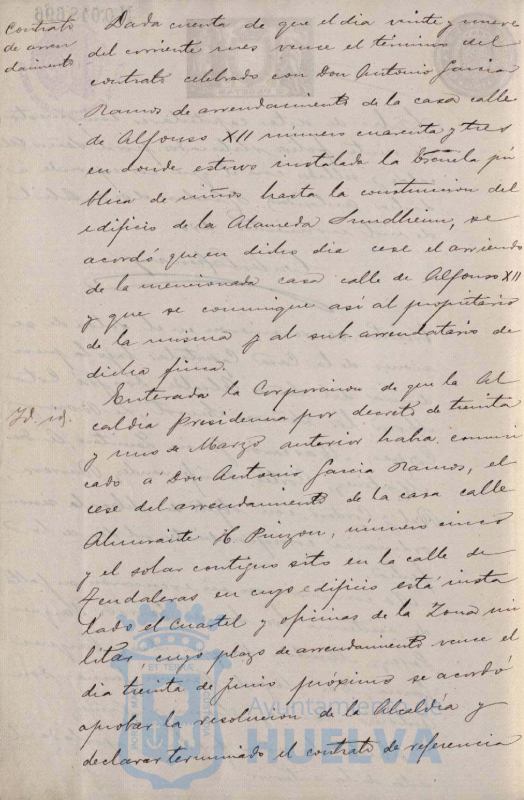 Contrato
de arren
damiento
Dada cuenta de que el dia veinte y nueve
del corriente mes vence el término del
contrato celebrado con Don Antonio Garcia
Ramos de arrendamiento de la casa calle
de Alfonso XII número cuarenta y tres
en donde estuvo instalada la Escuela pú
blica de niños hasta la construccion del
edificio de la Alameda Sundheim, se
acordó que en dicho dia cese el arriendo
de la mencionada casa calle de Alfonso XII
y que se comunique así al propietario
de la misma y al sub-arrendatario de
dicha finca.
Id. id.
Enterada la Corporacion de que la Al
caldía Presidencia por decreto de treinta
y uno de Marzo anterior habia comuni
cado á Don Antonio Garcia Ramos, el
cese del arrendamiento de la casa calle
Almirante H. Pinzon, número cinco
y el solar contiguo sito en la calle de
Tendaleras en cuyo edificio está insta
lado el cuartel y oficinas de la Zona mi
litar cuyo plazo de arrendamiento vence el
dia treinta de junio próximo se acordó
aprobar la resolucion de la Alcaldía y
declarar terminado el contrato de referencia
Ayuntamiento de
HUELVA